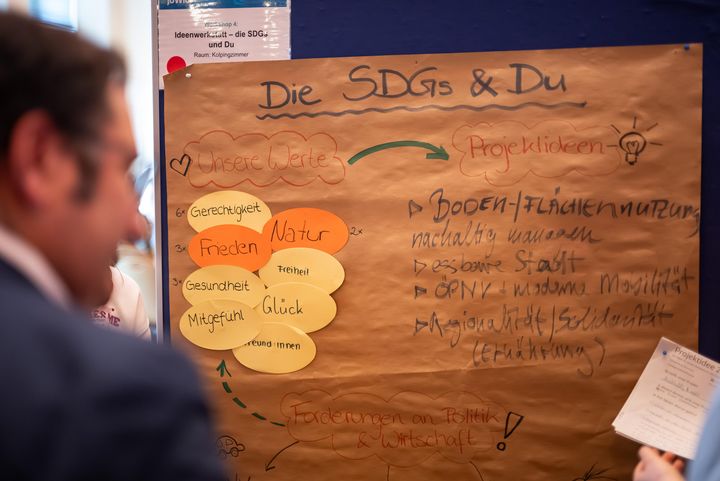 Workshop 4:
Ideenwerkstatt – die SDGs
und Du
Raum: Kolpingzimmer
Die SDGs & Du
Unsere Werte
Projektideen
6x Gerechtigkeit
3x Frieden
Natur 2x
3x Gesundheit
Freiheit
Mitgefühl
Glück
reund:innen
▷ BODEN-/FLÄCHENNUTZUNG
nachhaltig managen
▷ essbare Stadt
▷ ÖPNV + moderne Mobilität
▷ Regionalität/Solidarität
(Ernährung)
Forderungen an Politik
& Wirtschaft !
Projektidee 2